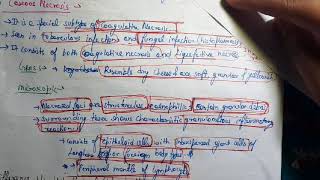 Caseous Necrosis :-
→ It is a special subtype of Coagulative Necrosis
→ Seen in Tuberculous infection and fungal infection (histoplasmosis)
→ It consists of both coagulative necrosis and liquefactive necrosis
Gross :- → Resemble dry cheese & are soft, granular & yellowish
Microscopic
→ Necrosed foci are structureless eosinophilic & contain granular debris
→ Surrounding tissue shows characteristic granulomatous inflammatory reaction
→ consists of epitheloid cells with interspersed giant cells of Langhans and/or foreign body type
→ Peripheral mantle of lymphocytes